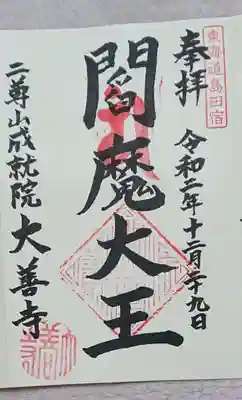 東海道島田宿
奉拝
令和二年十二月二十九日
閻魔大王
二尊山成就院
大善寺